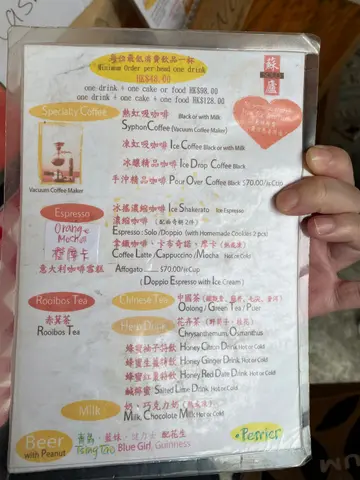 每位最低消費飲品一杯
Minimum Order per head one drink
HK$40.00
one drink + one cake or food HK$98.00
one drink + one cake + one food HK$128.00
蘇廬
Specialty Coffee
熱虹吸咖啡 Black or with Milk
Syphon Coffee (Vacuum Coffee Maker)
凍虹吸咖啡 Ice Coffee Black or with Milk
冰釀精品咖啡 Ice Drop Coffee Black
手沖精品咖啡 Pour Over Coffee Black $70.00/
Vacuum Coffee Maker
Espresso
Orange Mocha
橙摩卡
冰搖濃縮咖啡 Ice Shakerato Ice Espresso
濃縮咖啡 (配曲奇餅2件)
Espresso: Solo / Doppio (with Homemade Cookies 2 pcs)
拿鐵咖啡、卡布奇諾、摩卡 (熱或凍)
Coffee Latte / Cappuccino / Mocha Hot or Cold
意大利咖啡雪糕 Affogato $70.00/
(Doppio Espresso with Ice Cream)
Rooibos Tea
赤萁茶
Chinese Tea
中國茶
Oolong / Green Tea / Puer
Herb Drink
花卉茶
Chrysanthemum, Osmanthus
蜂蜜柚子特飲 Honey Citron Drink Hot or Cold
蜂蜜生薑特飲 Honey Ginger Drink Hot or Cold
蜂蜜紅棗特飲 Honey Red Date Drink Hot or Cold
鹹檸蜜 Salted Lime Drink Hot or Cold
Milk
奶、巧克力奶 (熱或凍)
Milk, Chocolate Milk Hot or Cold
Beer
with Peanut
青島、藍妹、健力士 配花生
Tsing Tao Blue Girl, Guinness
Perrier